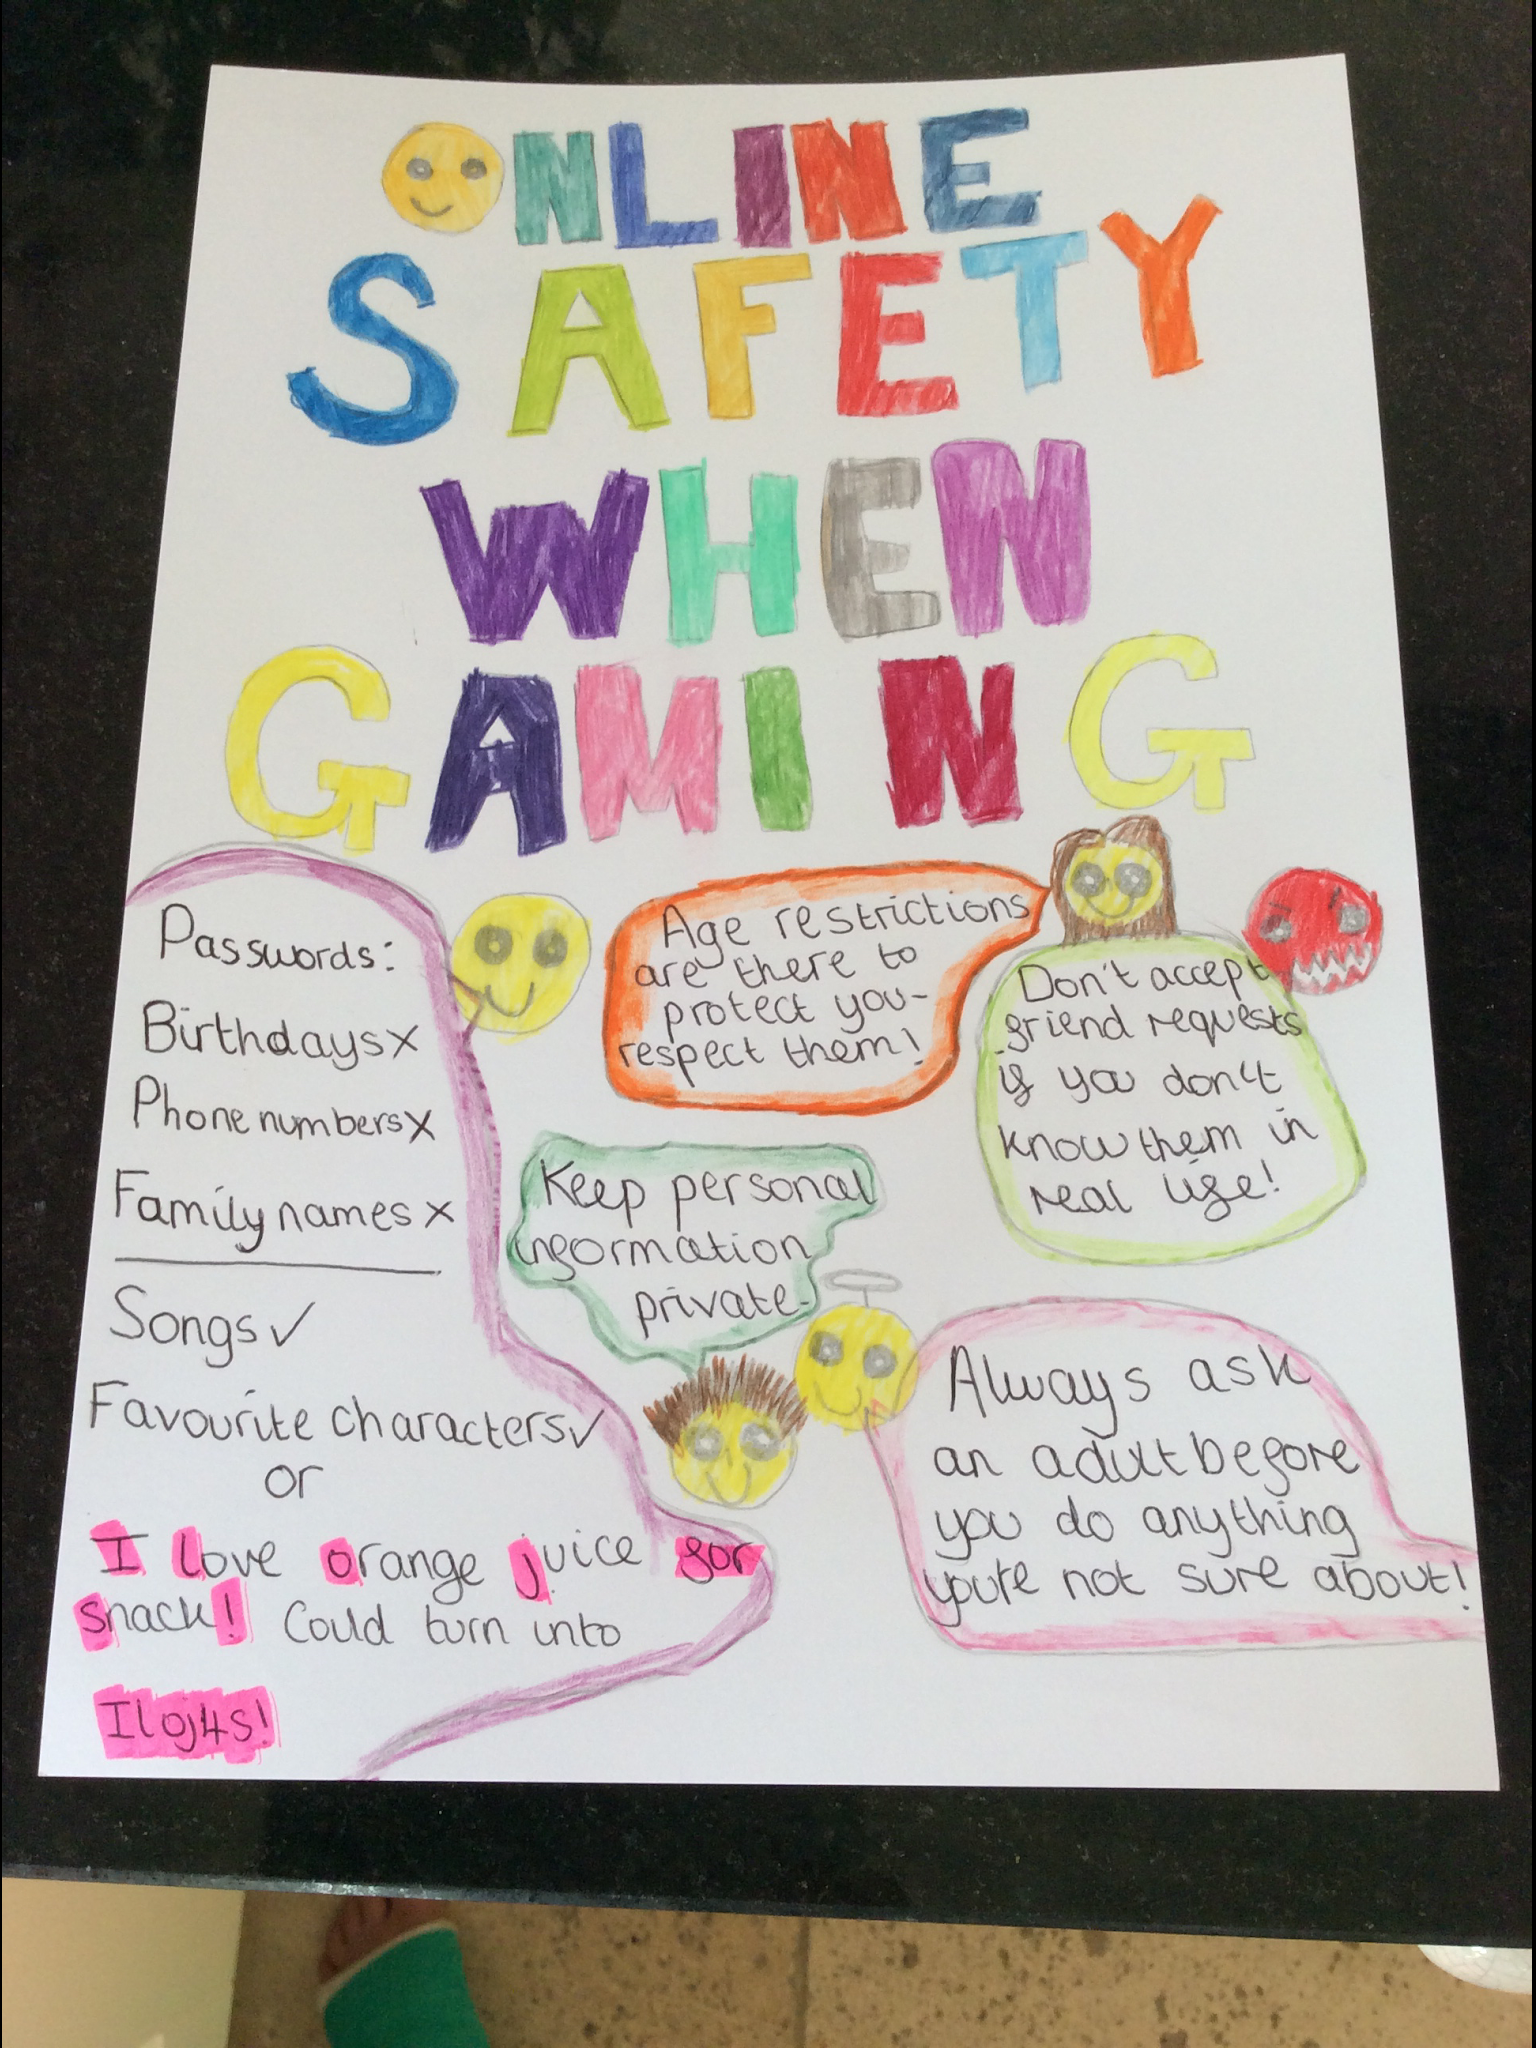 ONLINE
SAFETY
WHEN
GAMING
Passwords:
Birthdays x
Phone numbers x
Family names x
Songs ✓
Favourite characters ✓
or
I love orange juice for
snack! Could turn into
Iloj4s!
Age restrictions
are there to
protect you-
respect them!
Don't accept
friend requests
if you don't
know them in
real life!
Keep personal
information
private.
Always ask
an adult before
you do anything
you're not sure about!